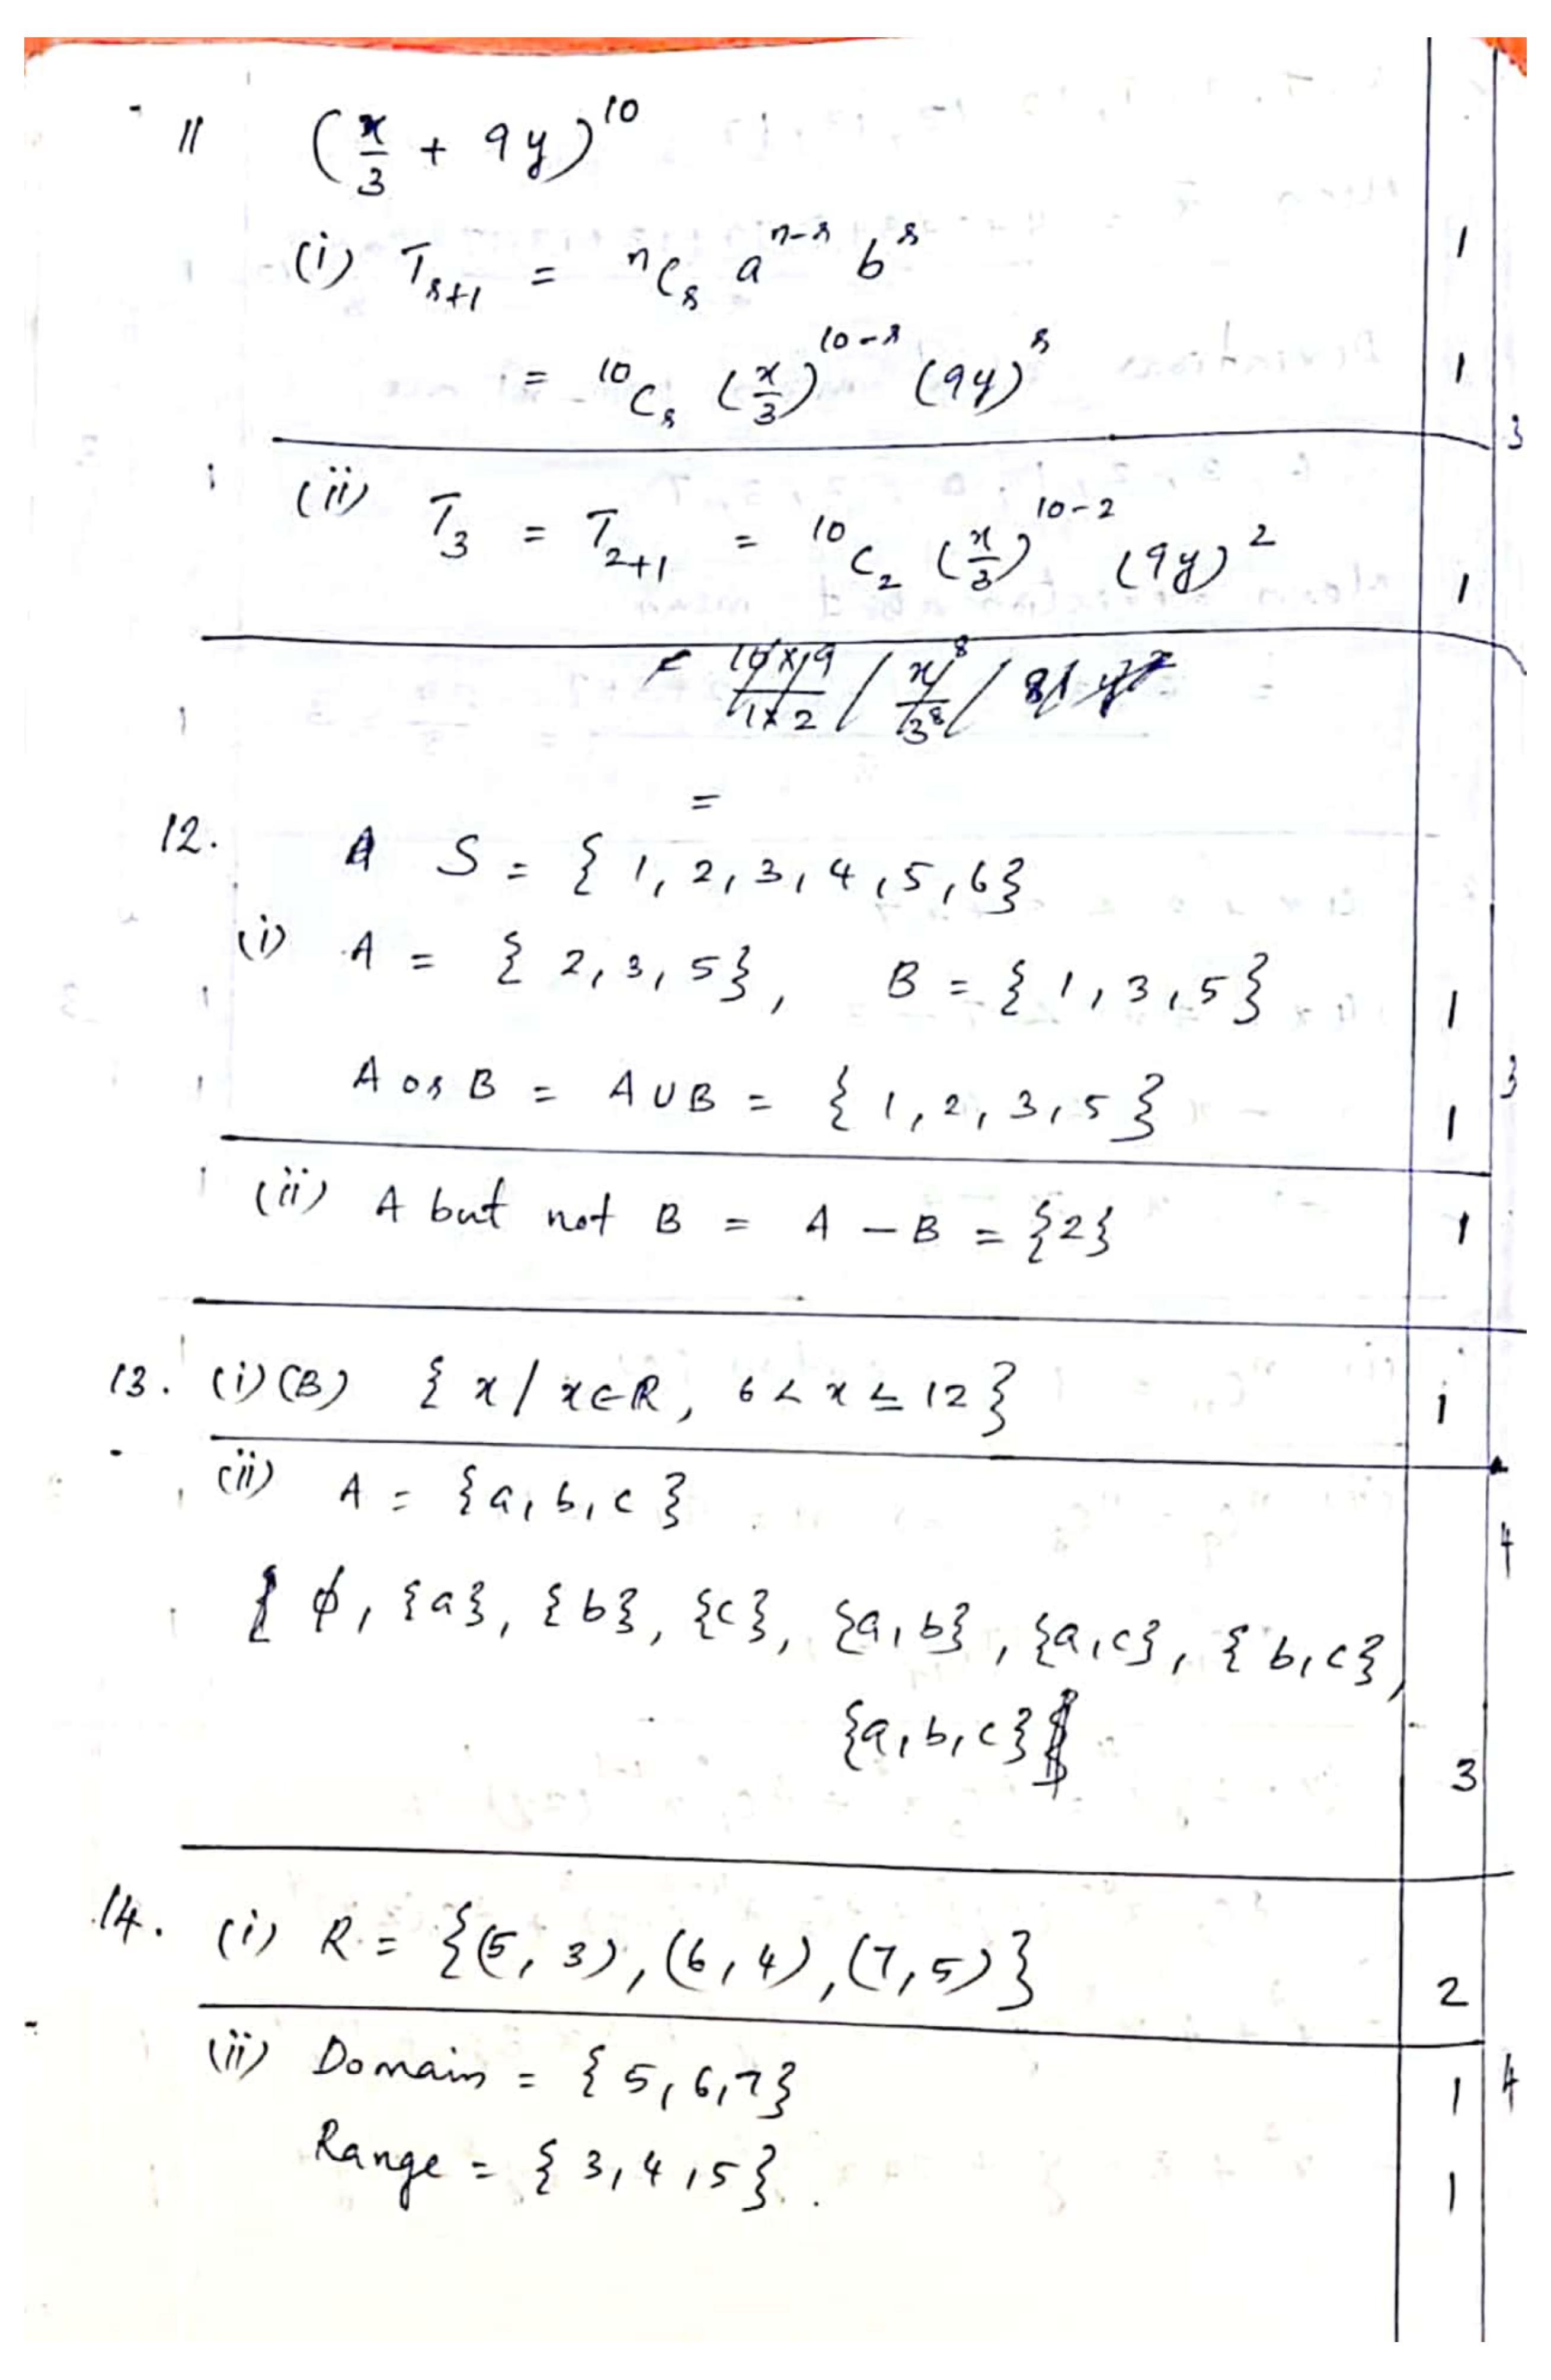 11 (x/3 + 9y)^10
(i) T_{r+1} = ^nC_r a^{n-r} b^r 1
= ^10C_r (x/3)^{10-r} (9y)^r 1
3
(ii) T_3 = T_{2+1} = ^10C_2 (x/3)^{10-2} (9y)^2 1
= 10×9/1×2 x^8/3^8 81 y^2
=
12. S = { 1, 2, 3, 4, 5, 6}
(i) A = { 2, 3, 5}, B = { 1, 3, 5} 1
3
A or B = A ∪ B = { 1, 2, 3, 5 } 1
(ii) A but not B = A – B = {2} 1
13. (i) (B) { x / x ∈ R, 6 < x ≤ 12 } 1
(ii) A = {a, b, c }
4
φ, {a}, {b}, {c}, {a, b}, {a, c}, { b, c},
{a, b, c} 3
14. (i) R = {(5, 3), (6, 4), (7, 5)} 2
(ii) Domain = { 5, 6, 7} 1 4
Range = { 3, 4, 5}. 1